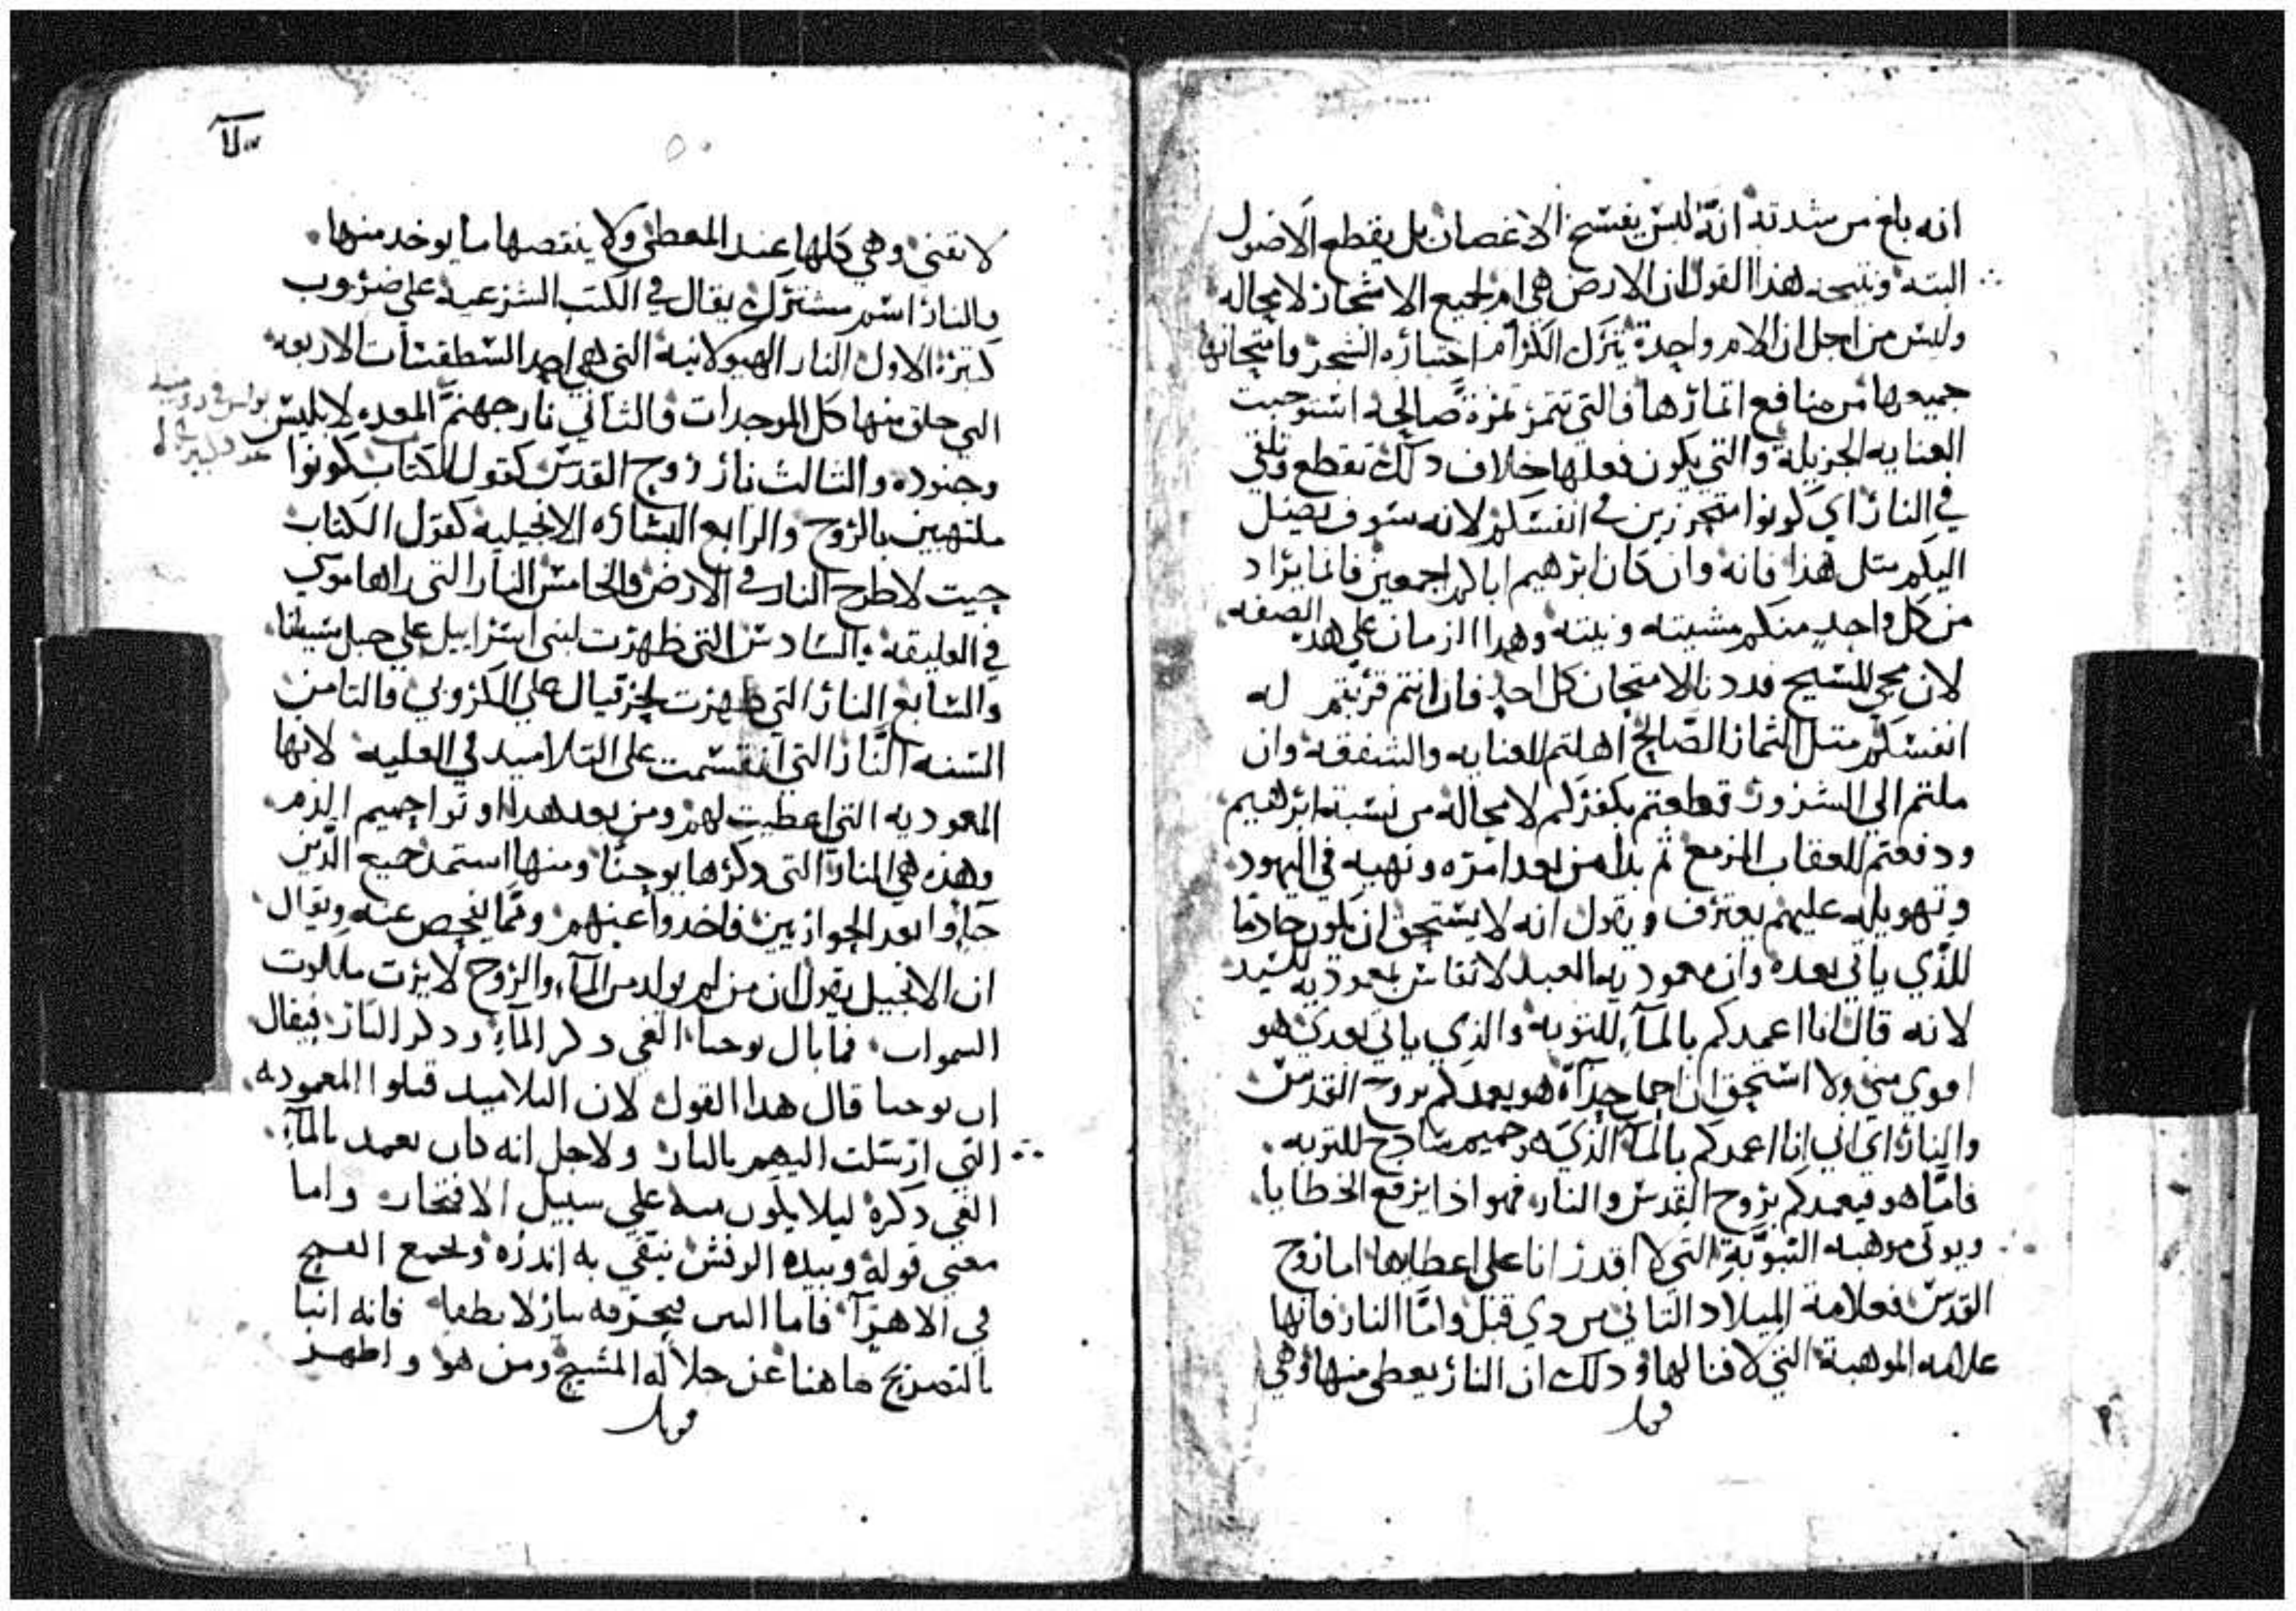 انه بلغ من شدته انه ليس يفسخ الاغصان بل يقطع الاصول
البته ونتيجه هذا القول ان الارض هي ام لجميع الاشجار لا محاله
وليس من اجل ان الام واحدة يترك الكرام اختباره الشجر وامتحانها
جميعها من منافع اتمارها فالتي تتمر تمرة صالحه استوجبت
العنايه الجزيله والتي يكون فعلها خلاف دلك تقطع وتلقي
في النار اي كونوا متحرزين في انفسكم لانه سوف يصل
اليكم متل هذا فانه وان كان ابرهيم ابا لكم اجمعين فانما يراد
من كل واحد منكم مشيته ونيته وهدا الزمان علي هده الصفه
لان مجي المسيح فدد بالامتحان كل احد فان انتم قربتم له
انفسكم متل التمار الصالح اهلتم للعنايه والشفقه وان
ملتم الي الشرور قطعتم بكفركم لا محاله من نسبة ابرهيم
ودفعتم للعقاب المزمع ثم بدا من بعد امره ونهيه في اليهود
وتهويله عليهم يعترف ويقول انه لا يستحق ان يكون خادما
للذي ياتي بعده وان معموديه العبد لا تقاس بمعموديه السيد
لانه قال انا اعمدكم بالمآء للتوبه والذي ياتي بعدي هو
اقوي مني ولا استحق ان احمل حدآه هو يعمدكم بروح القدس
والنار اي اني انا اعمدكم بالمآ الذي هو حميم سادج للتوبه
فاما هو فيعمدكم بروح القدس والنار فهو اذا يرفع الخطايا
ويوتي موهبه النبوة التي لا اقدر انا علي اعطايها اما روح
القدس فعلامة الميلاد التاني من دي قبل واما النار فانها
علامه الموهبة التي لا فنا لها ودلك ان النار يعطي منها وهي
قوبل
لا تفني وهي كلها عند المعطي ولا ينقصها ما يوخد منها
والنار اسم مشترك يقال في الكتب الشرعيه علي ضروب
كتيرة الاول النار الهيولانيه التي هي احد السطقسات الاربعه
التي خلق منها كل الموجدات والثاني نار جهنم المعده لابليس
وجنوده والثالث نار روح القدس كقول الكتاب كونوا
ملتهبين بالروح والرابع البشاره الانجيليه كقول الكتاب
جيت لاطرح النار في الارض والخامس النار التي راها موسي
في العليقه والسادس التي ظهرت لبني اسراييل علي جبل سينا
والسابع النار التي ظهرت لحزقيال علي الكروبي والتامن
السنه النار التي انقسمت علي التلاميد في العليه لانها
المعوديه التي اعطيت لهم ومن بعد هدا اوتوا حميم الزم
وهذه هي النار التي دكرها يوحنا ومنها استمد جميع الذين
جاوا بعد الحواريين فاخدوا عنهم ومما يفحص عنه ويقال
ان الانجيل يقول ان من لم يولد من المآء والروح لا يرت ملكوت
السموات فما بال يوحنا الغي دكر المآء ودكر النار فيقال
ان يوحنا قال هدا القول لان التلاميد قبلوا المعموديه
التي ارسلت اليهم بالنار ولاجل انه كان يعمد بالمآء
الغي دكره ليلا يكون منه علي سبيل الافتخار واما
معني قوله وبيده الرفش ينقي به اندره ويجمع القمح
في الاهرآء فاما التبن فيحرقه بنار لا تطفا فانه انبا
بالتصريح هاهنا عن جلالة المسيح ومن هو واظهر
قوبل